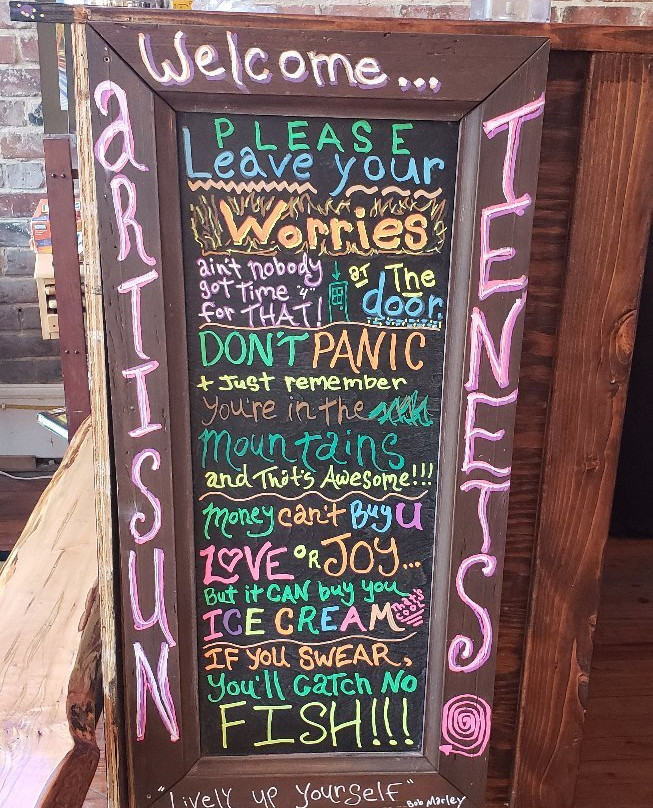 Welcome...
ARTISUN
TENETS
PLEASE
Leave your
Worries
ain't nobody
got Time "4"
for THAT!
at The
door.
DON'T PANIC
+ Just remember
You're in the
Mountains
and That's Awesome!!!
Money can't Buy U
LOVE OR JOY...
But it CAN buy you
ICE CREAM
THAT'S
COOL
IF you SWEAR,
You'll Catch No
FISH!!!
"Lively up yourself"
Bob Marley